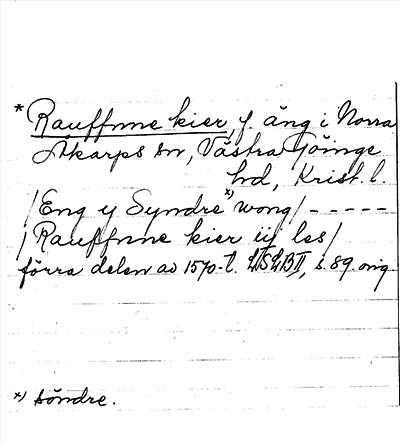 * Rauffnne kier, f. äng i Norra
Åkarps sn, Västra Göinge
hd, Krist. l.
/Eng y Syndre *) wong/ -----
/Rauffnne kier iij les/
förra delen av 1570-t. LTS2BII, s. 89. orig.
*) söndre.